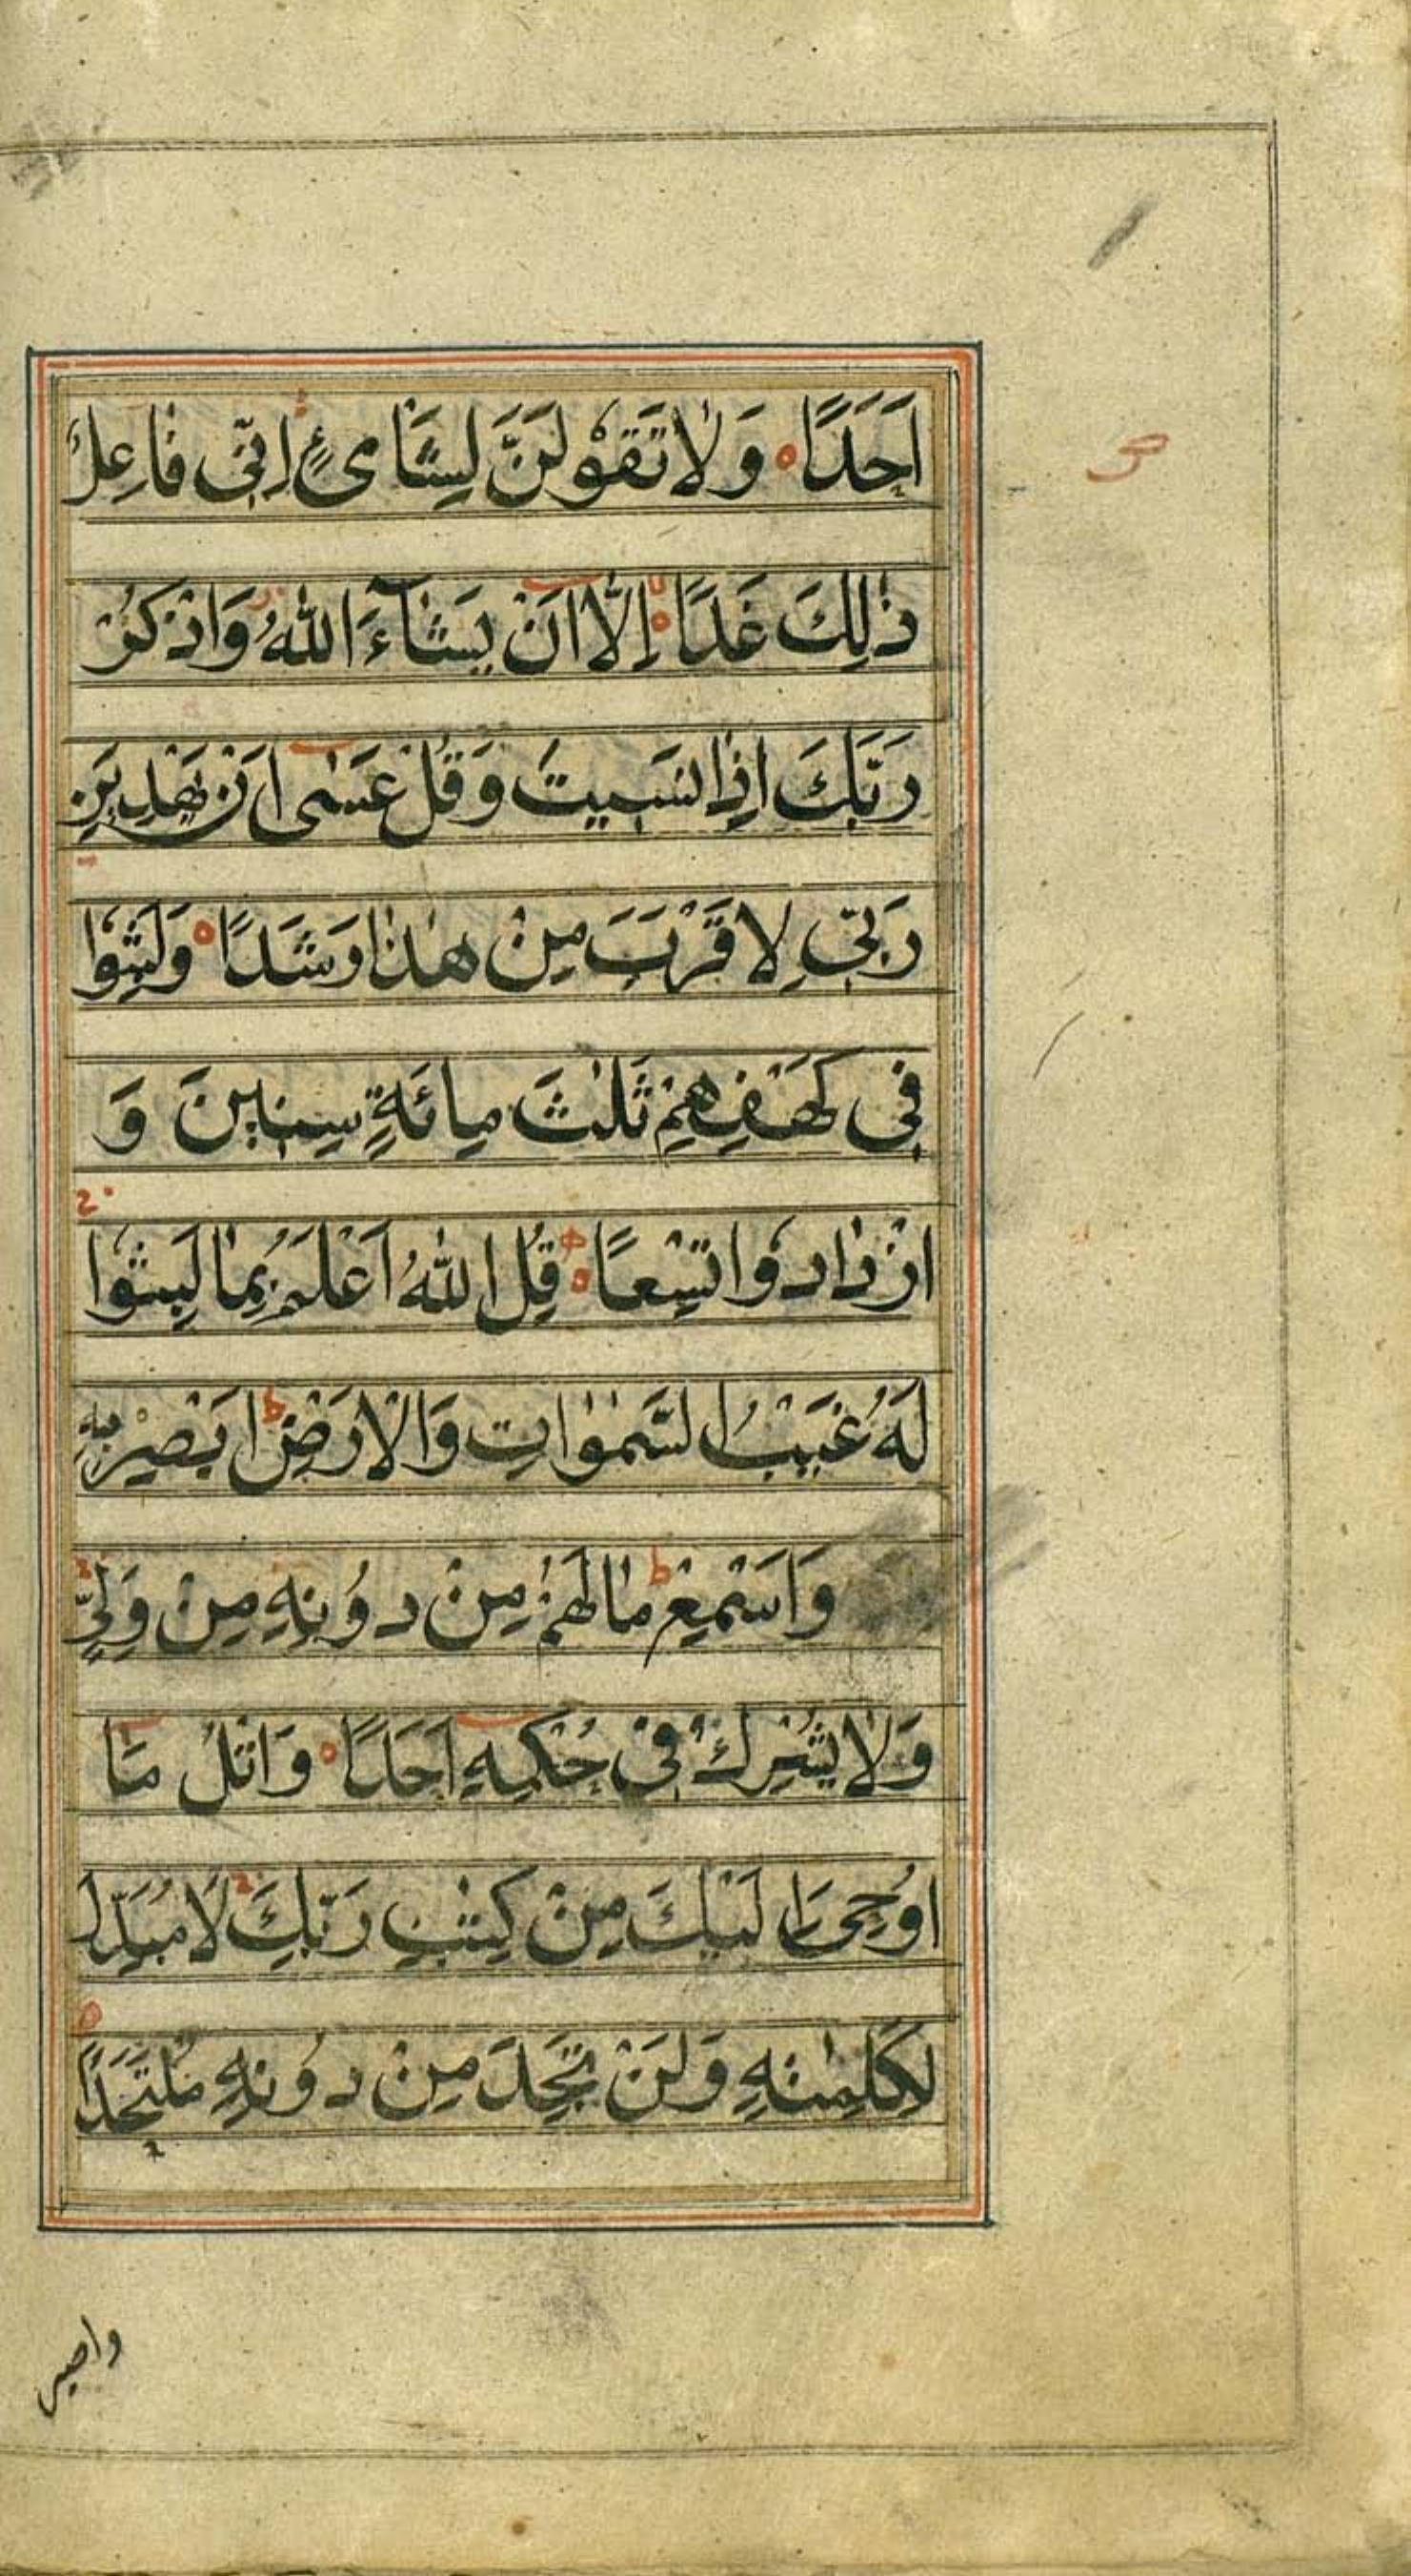 اَحَدًا وَلَا تَقُوْلَنَّ لِشَایْءٍ اِنِّی فَاعِلٌ
ذٰلِكَ غَدًا اِلَّا اَنْ یَشَآءَ اللّٰهُ وَاذْكُرْ
رَبَّكَ اِذَا نَسِیتَ وَقُلْ عَسٰی اَنْ یَهْدِیَنِ
رَبِّی لِاَقْرَبَ مِنْ هٰذَا رَشَدًا وَلَبِثُوْا
فِی كَهْفِهِمْ ثَلٰثَ مِائَةٍ سِنِینَ وَ
ازْدَادُوْا تِسْعًا قُلِ اللّٰهُ اَعْلَمُ بِمَا لَبِثُوْا
لَهُ غَیْبُ السَّمٰوٰاتِ وَالْاَرْضِ اَبْصِرْ بِهِ
وَاَسْمِعْ مَا لَهُمْ مِنْ دُوْنِهِ مِنْ وَلِیٍّ
وَلَا یُشْرِكُ فِی حُكْمِهِ اَحَدًا وَاتْلُ مَا
اُوْحِیَ اِلَیْكَ مِنْ كِتٰبِ رَبِّكَ لَا مُبَدِّلَ
لِكَلِمٰتِهِ وَلَنْ تَجِدَ مِنْ دُوْنِهِ مُلْتَحَدًا
واصبر